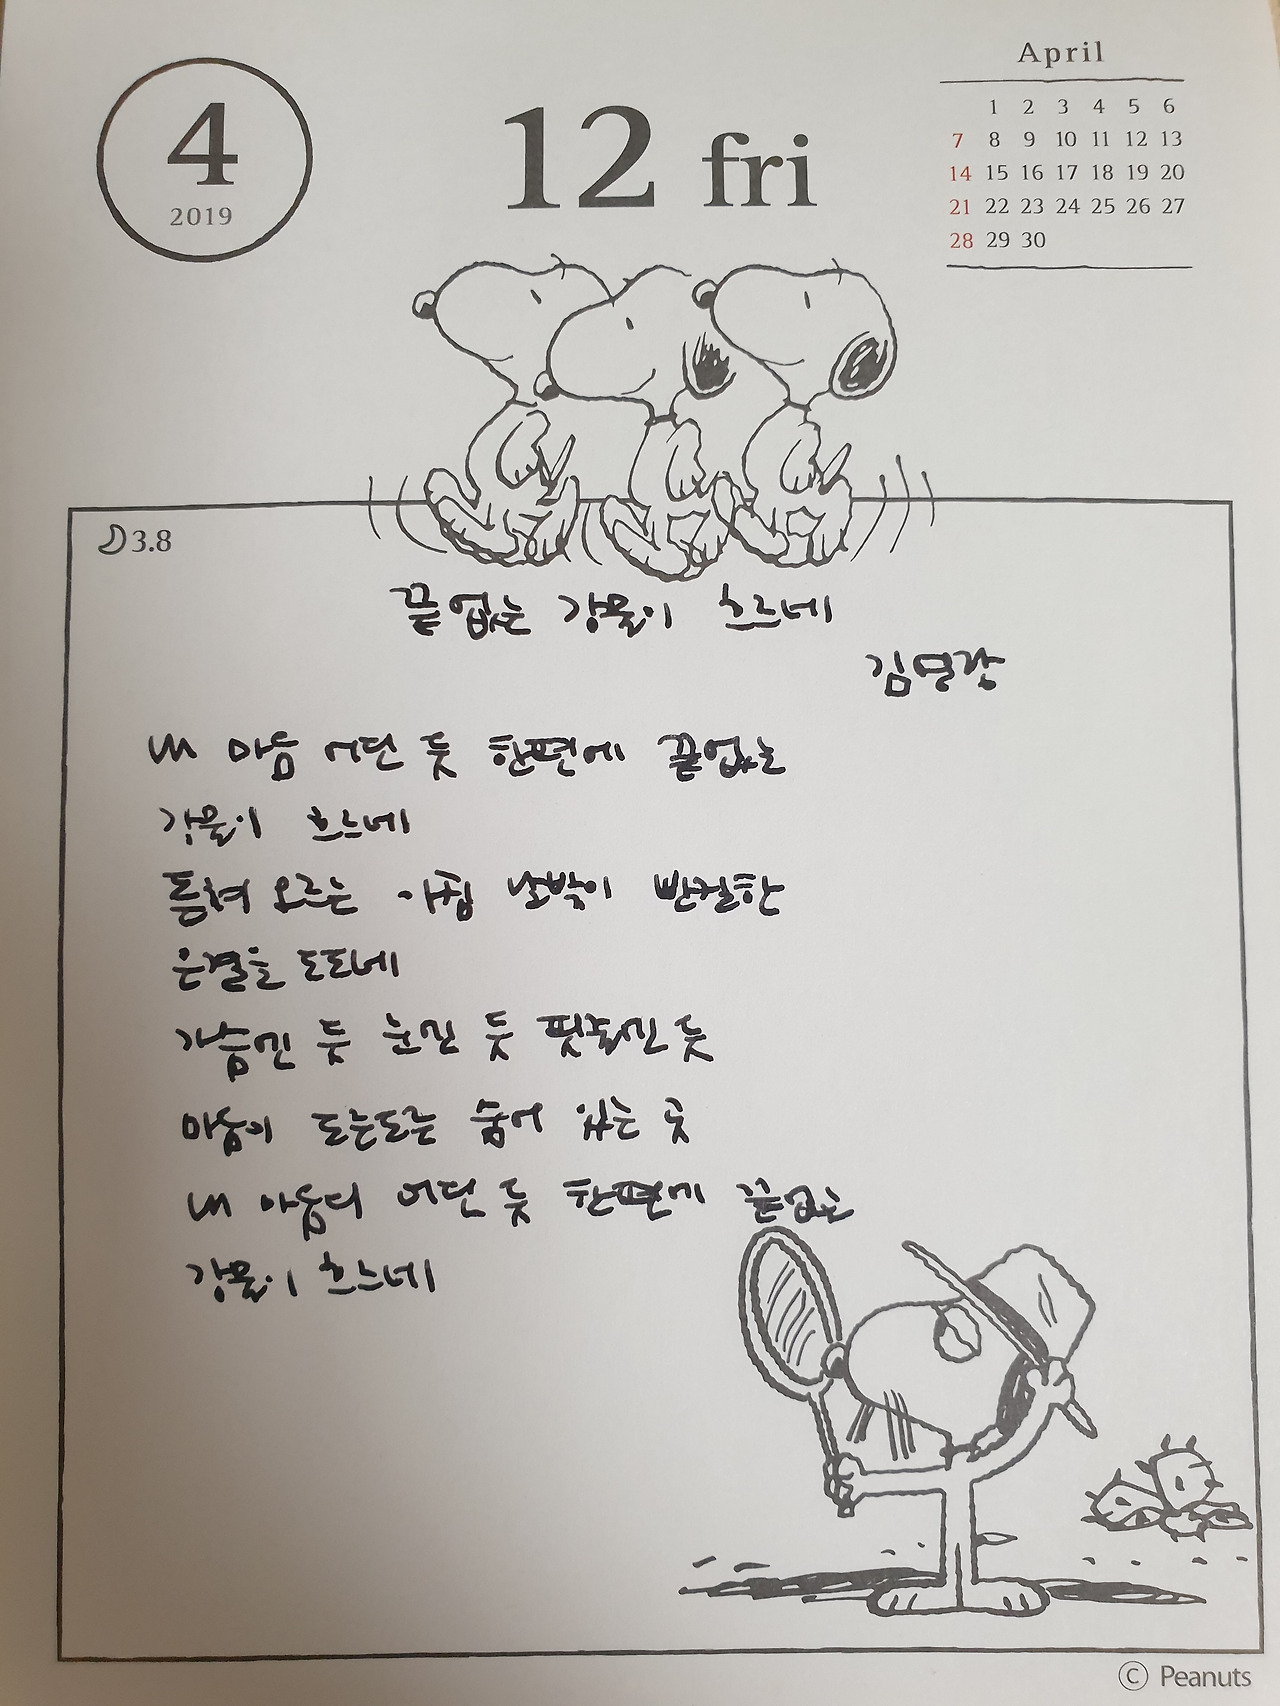 4
2019
12 fri
April
1 2 3 4 5 6
7 8 9 10 11 12 13
14 15 16 17 18 19 20
21 22 23 24 25 26 27
28 29 30
3.8
끝없는 강물이 흐르네
김영랑
내 마음 어딘 듯 한편에 끝없는
강물이 흐르네
돋쳐 오르는 아침 날빛이 빤질한
은결을 도도네
가슴엔 듯 눈엔 듯 핏줄엔 듯
마음이 도른도른 숨어 있는 곳
내 마음의 어딘 듯 한편에 끝없는
강물이 흐르네
© Peanuts